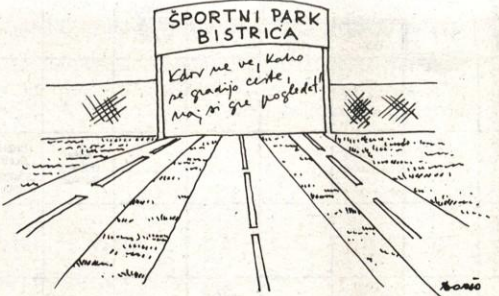 ŠPORTNI PARK
BISTRICA
Kdor ne ve, kako
se gradijo ceste,
naj si gre pogledat!